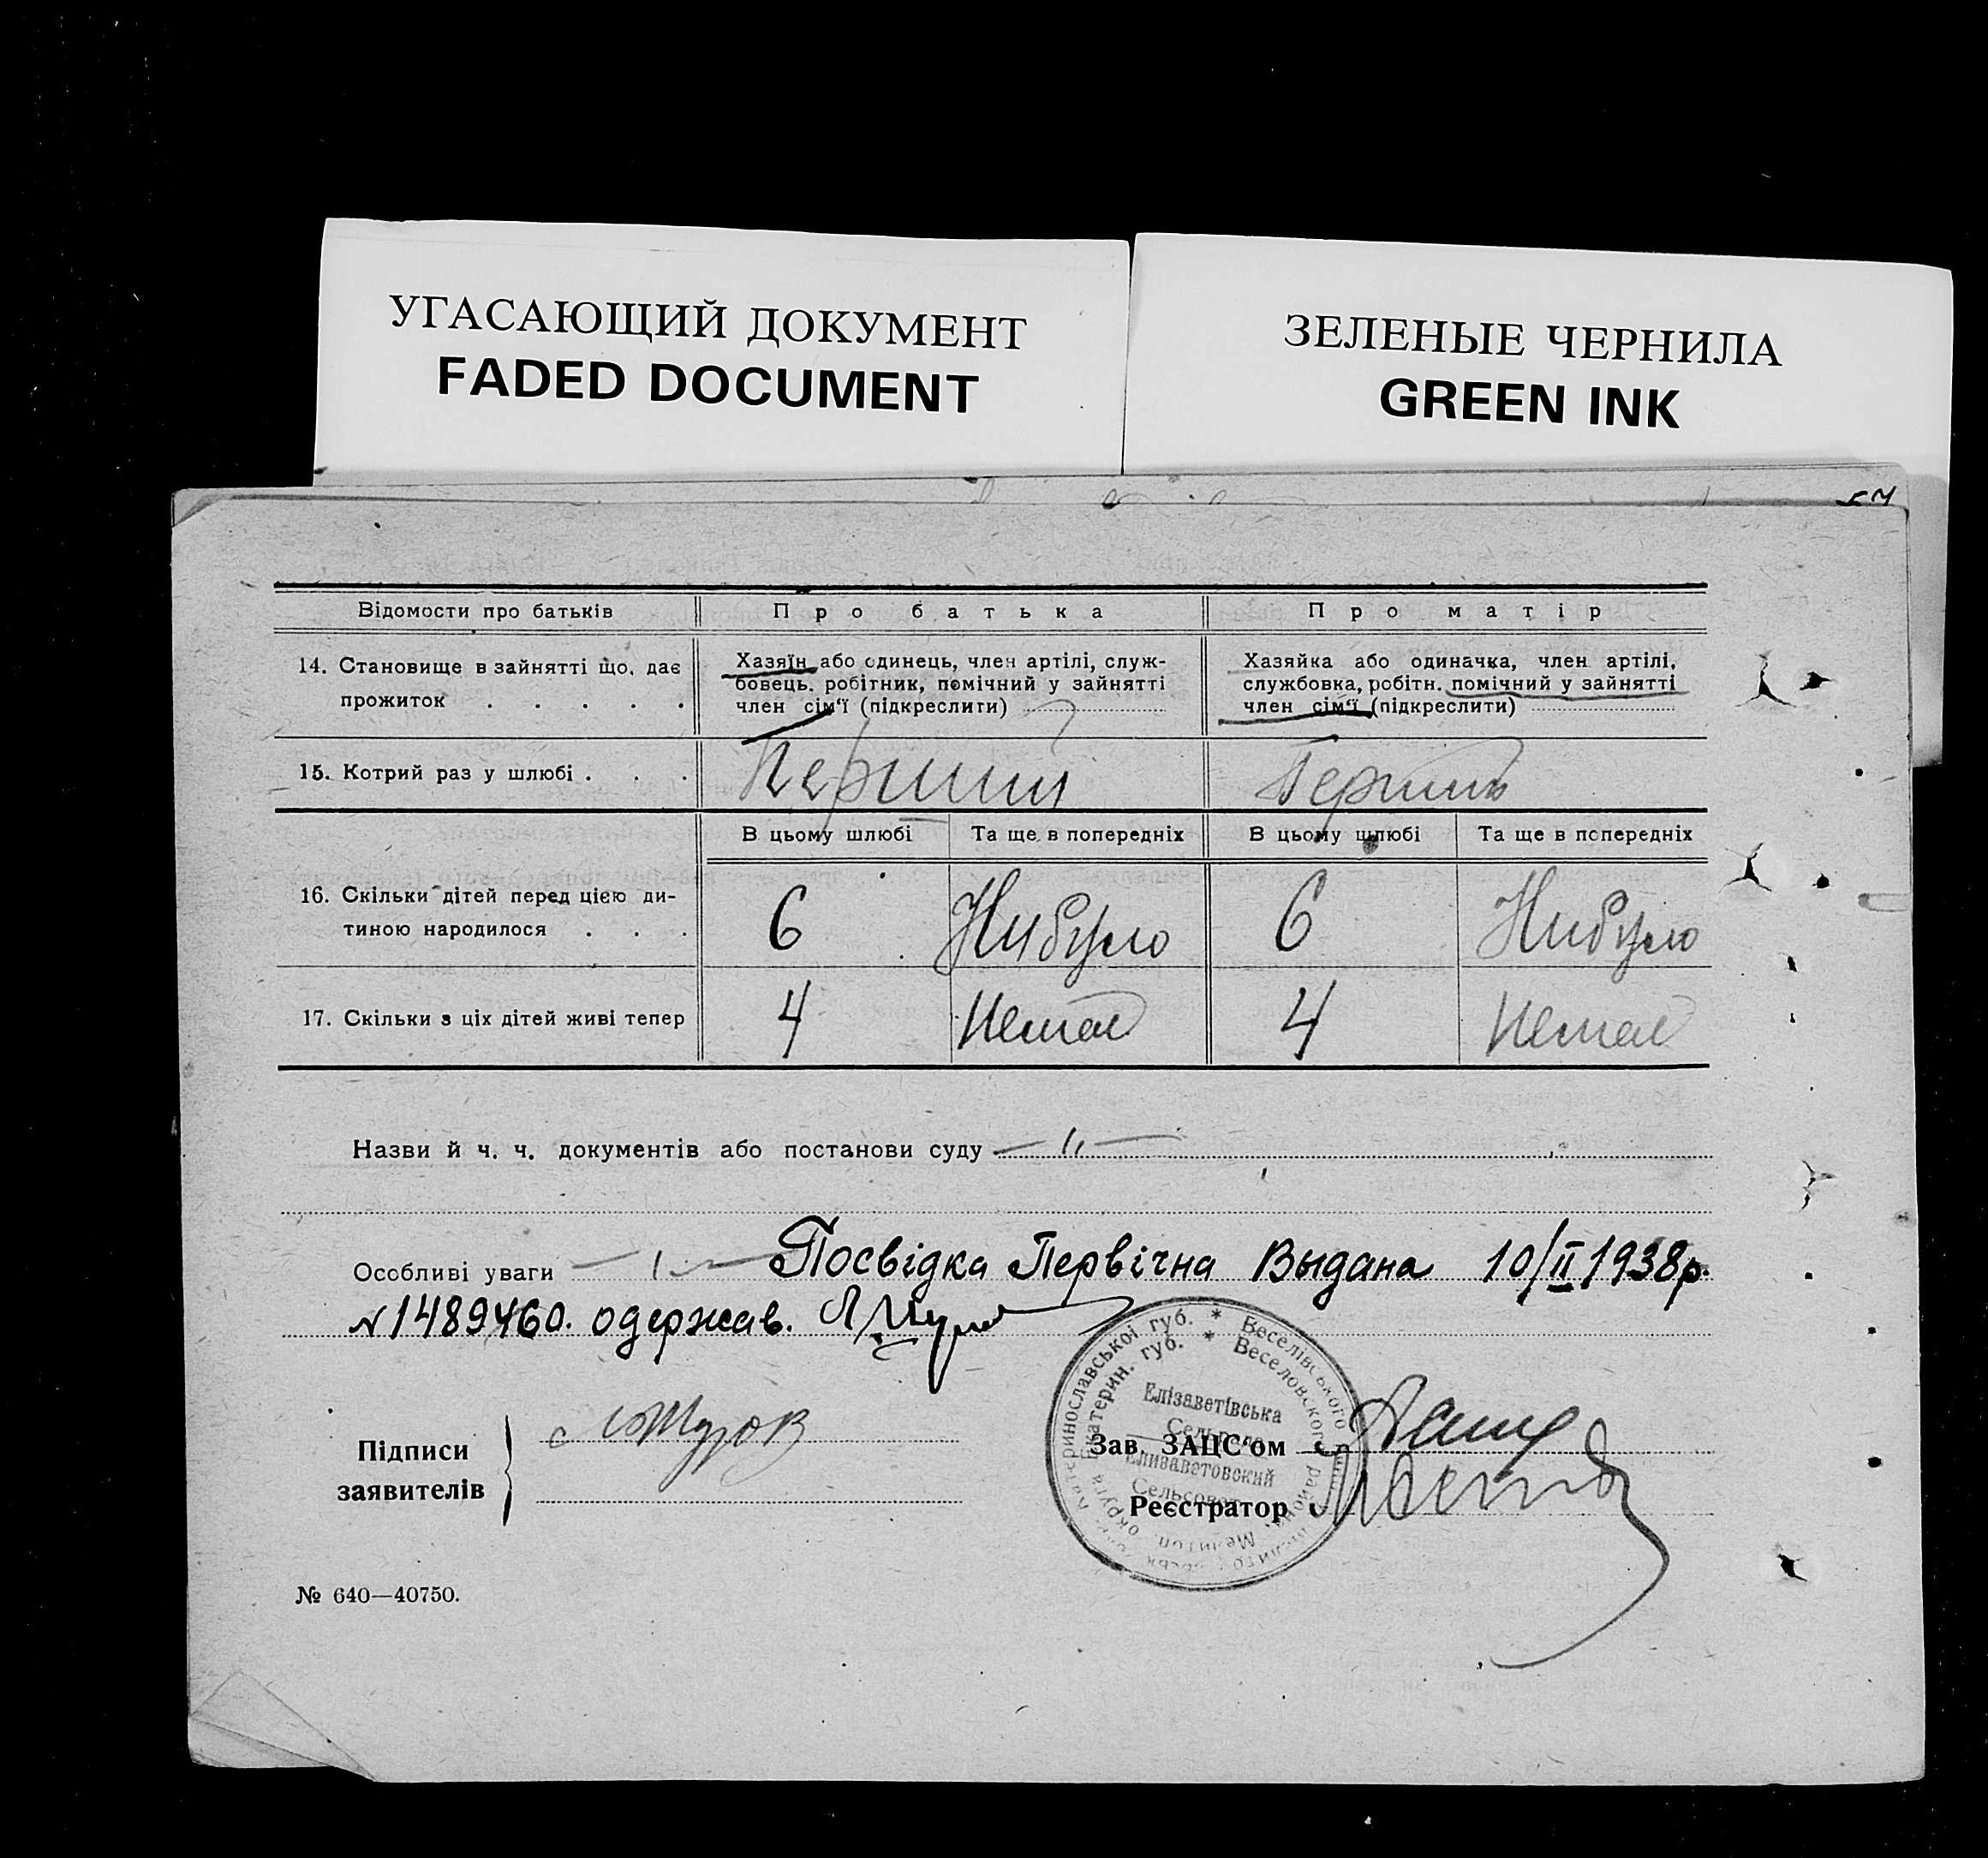 УГАСАЮЩИЙ ДОКУМЕНТ
FADED DOCUMENT
ЗЕЛЕНЫЕ ЧЕРНИЛА
GREEN INK
Відомости про батьків
Про батька
Про матір
14. Становище в зайнятті що, дає
прожиток . . . . .
Хазяїн або одинець, член артілі, служ-
бовець. робітник, помічний у зайнятті
член сім'ї (підкреслити)
Хазяйка або одиначка, член артілі,
службовка, робітн. помічний у зайнятті
член сім'ї (підкреслити)
15. Котрий раз у шлюбі . . .
Перший
В цьому шлюбі
Та ще в попередніх
В цьому шлюбі
Та ще в попередніх
16. Скільки дітей перед цією ди-
тиною народилося . . .
6
Нибуло
6
Нибуло
17. Скільки з ціх дітей живі тепер
4
Немає
4
Немає
Назви й ч. ч. документів або постанови суду — " —
Особливі уваги
Посвідка Первічна Выдана 10/II 1938р.
N 1489460. одержав.
Підписи
заявителів
Зав. ЗАЦС'ом
Реєстратор
Катеринославської губ. * Веселівського
Екатерин. губ. * Веселовского района, Мелитоп. округа
Елізаветівська
Сельрада
Елизаветовский
Сельсовет
№ 640—40750.